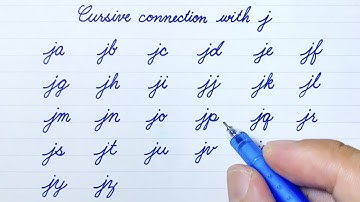 Cursive connection with j
ja jb jc jd je jf
jg jh ji jj jk jl
jm jn jo jp jq jr
js jt ju jv
jy jz